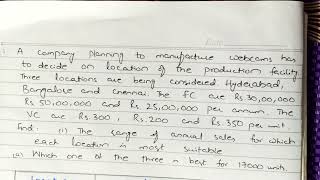 A company planning to manufacture webcams has
to decide on location of the production facility.
Three locations are being considered Hyderabad,
Bangalore and chennai. The FC are Rs. 30,00,000
Rs 50,00,000 and Rs. 25,00,000 per annum. The
VC are Rs. 300, Rs. 200 and Rs. 350 per unit.
find: (i) The range of annual sales for which
each location is most suitable
(ii) Which one of the three is best for 17000 units.